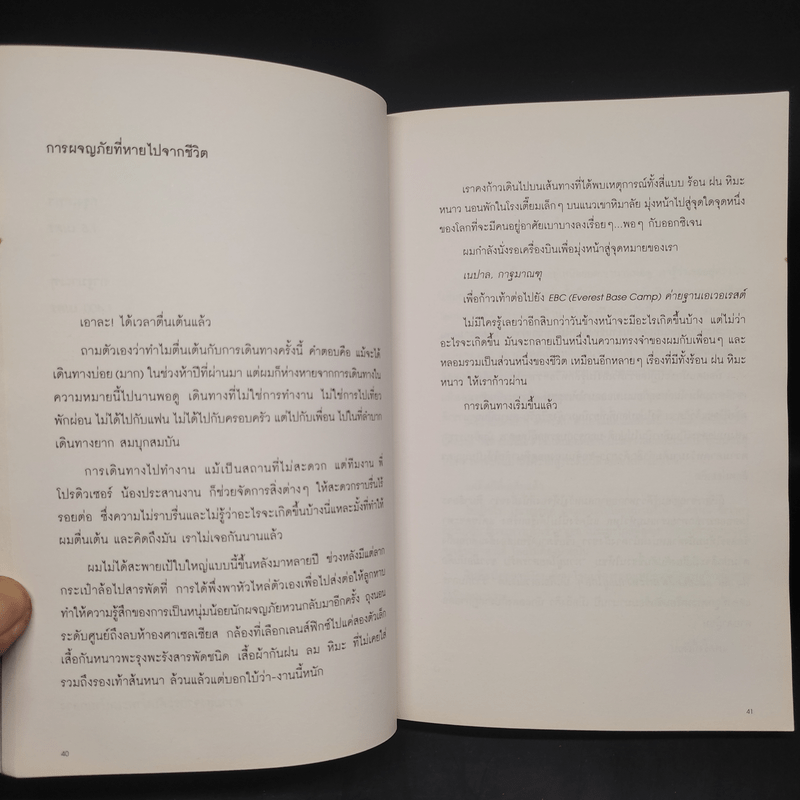 การผจญภัยที่หายไปจากชีวิต
เอาละ! ได้เวลาตื่นเต้นแล้ว
ถามตัวเองว่าทำไมตื่นเต้นกับการเดินทางครั้งนี้ คำตอบคือ แม้จะได้
เดินทางบ่อย (มาก) ในช่วงห้าปีที่ผ่านมา แต่ผมก็ห่างหายจากการเดินทางใน
ความหมายนี้ไปนานพอดู เดินทางที่ไม่ใช่การทำงาน ไม่ใช่การไปเที่ยว
พักผ่อน ไม่ได้ไปกับแฟน ไม่ได้ไปกับครอบครัว แต่ไปกับเพื่อน ไปในที่ลำบาก
เดินทางยาก สมบุกสมบัน
การเดินทางไปทำงาน แม้เป็นสถานที่ไม่สะดวก แต่ทีมงาน พี่
โปรดิวเซอร์ น้องประสานงาน ก็ช่วยจัดการสิ่งต่างๆ ให้สะดวกราบรื่นไร้
รอยต่อ ซึ่งความไม่ราบรื่นและไม่รู้ว่าอะไรจะเกิดขึ้นบ้างนี่แหละมั้งที่ทำให้
ผมตื่นเต้น และคิดถึงมัน เราไม่เจอกันนานแล้ว
ผมไม่ได้สะพายเป้ใบใหญ่แบบนี้ขึ้นหลังมาหลายปี ช่วงหลังมีแต่ลาก
กระเป๋าล้อไปสารพัดที่ การได้พึ่งพาหัวไหล่ตัวเองเพื่อไปส่งต่อให้ลูกหาบ
ทำให้ความรู้สึกของการเป็นหนุ่มน้อยนักผจญภัยหวนกลับมาอีกครั้ง ถุงนอน
ระดับศูนย์ถึงลบห้าองศาเซลเซียส กล้องที่เลือกเลนส์ฟิกซ์ไปแค่สองตัวเล็ก
เสื้อกันหนาวพะรุงพะรังสารพัดชนิด เสื้อผ้ากันฝน ลม หิมะ ที่ไม่เคยใส่
รวมถึงรองเท้าส้นหนา ล้วนแล้วแต่บอกใบ้ว่า-งานนี้หนัก
40
เราคงก้าวเดินไปบนเส้นทางที่ได้พบเหตุการณ์ทั้งสี่แบบ ร้อน ฝน หิมะ
หนาว นอนพักในโรงเตี๊ยมเล็กๆ บนแนวเขาหิมาลัย มุ่งหน้าไปสู่จุดใดจุดหนึ่ง
ของโลกที่จะมีคนอยู่อาศัยเบาบางลงเรื่อยๆ...พอๆ กับออกซิเจน
ผมกำลังนั่งรอเครื่องบินเพื่อมุ่งหน้าสู่จุดหมายของเรา
เนปาล, กาฐมาณฑุ
เพื่อก้าวเท้าต่อไปยัง EBC (Everest Base Camp) ค่ายฐานเอเวอเรสต์
ไม่มีใครรู้เลยว่าอีกสิบกว่าวันข้างหน้าจะมีอะไรเกิดขึ้นบ้าง แต่ไม่ว่า
อะไรจะเกิดขึ้น มันจะกลายเป็นหนึ่งในความทรงจำของผมกับเพื่อนๆ และ
หลอมรวมเป็นส่วนหนึ่งของชีวิต เหมือนอีกหลายๆ เรื่องที่มีทั้งร้อน ฝน หิมะ
หนาว ให้เราก้าวผ่าน
การเดินทางเริ่มขึ้นแล้ว
41